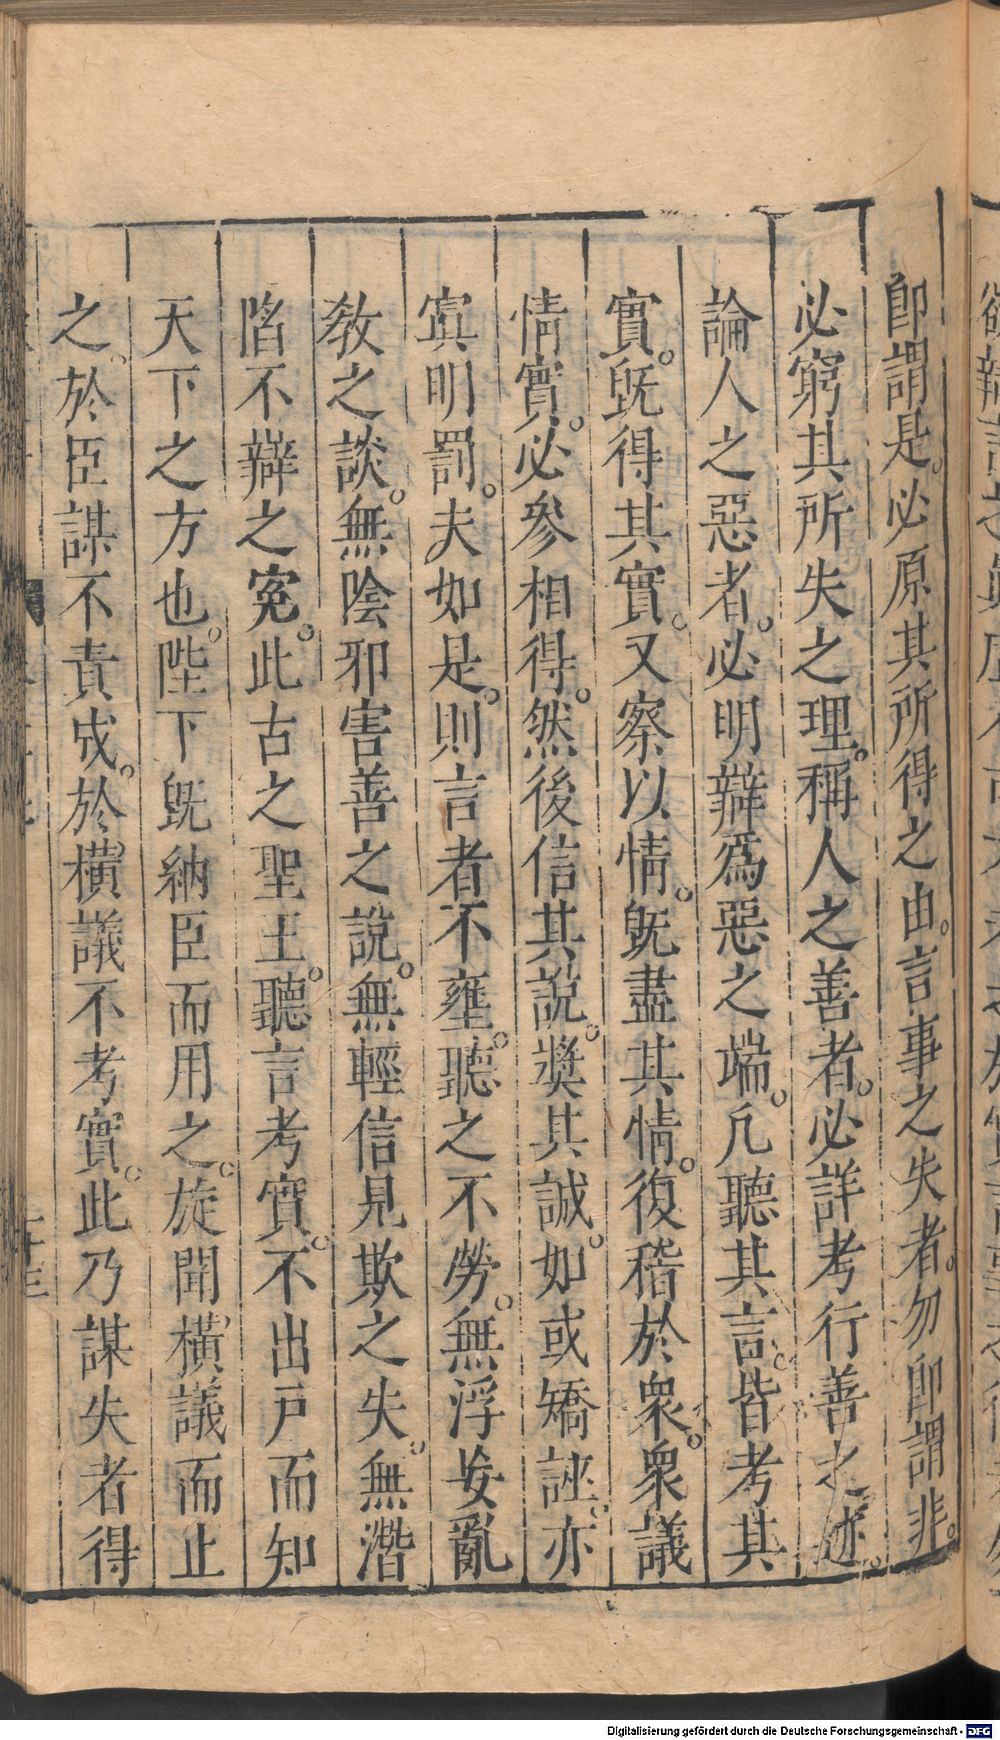 卽謂是。必原其所得之由。言事之失者。勿卽謂非。
必窮其所失之理。稱人之善者。必詳考行善之迹。
論人之惡者。必明辯爲惡之端。凡聽其言。皆考其
實。旣得其實。又察以情。旣盡其情。復稽於衆。衆議
情實。必參相得。然後信其說。獎其誠。如或矯誣。亦
寘明罰。夫如是。則言者不壅。聽之不勞。無浮妄亂
敎之談。無陰邪害善之說。無輕信見欺之失。無潛
陷不辯之寃。此古之聖王。聽言考實。不出戸而知
天下之方也。陛下旣納臣而用之。旋聞橫議而止
之。於臣謀不責成。於橫議不考實。此乃謀失者得
Digitalisierung gefördert durch die Deutsche Forschungsgemeinschaft - DFG